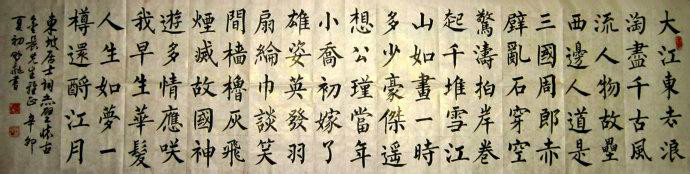 大江東去浪
淘盡千古風
流人物故壘
西邊人道是
三國周郎赤
壁亂石穿空
驚濤拍岸卷
起千堆雪江
山如畫一時
多少豪傑遥
想公瑾當年
小喬初嫁了
雄姿英發羽
扇綸巾談笑
間檣櫓灰飛
煙滅故國神
遊多情應咲
我早生華髮
人生如夢一
樽還酹江月
東坡居士詞赤壁懷古
先生雅正辛卯
夏初書